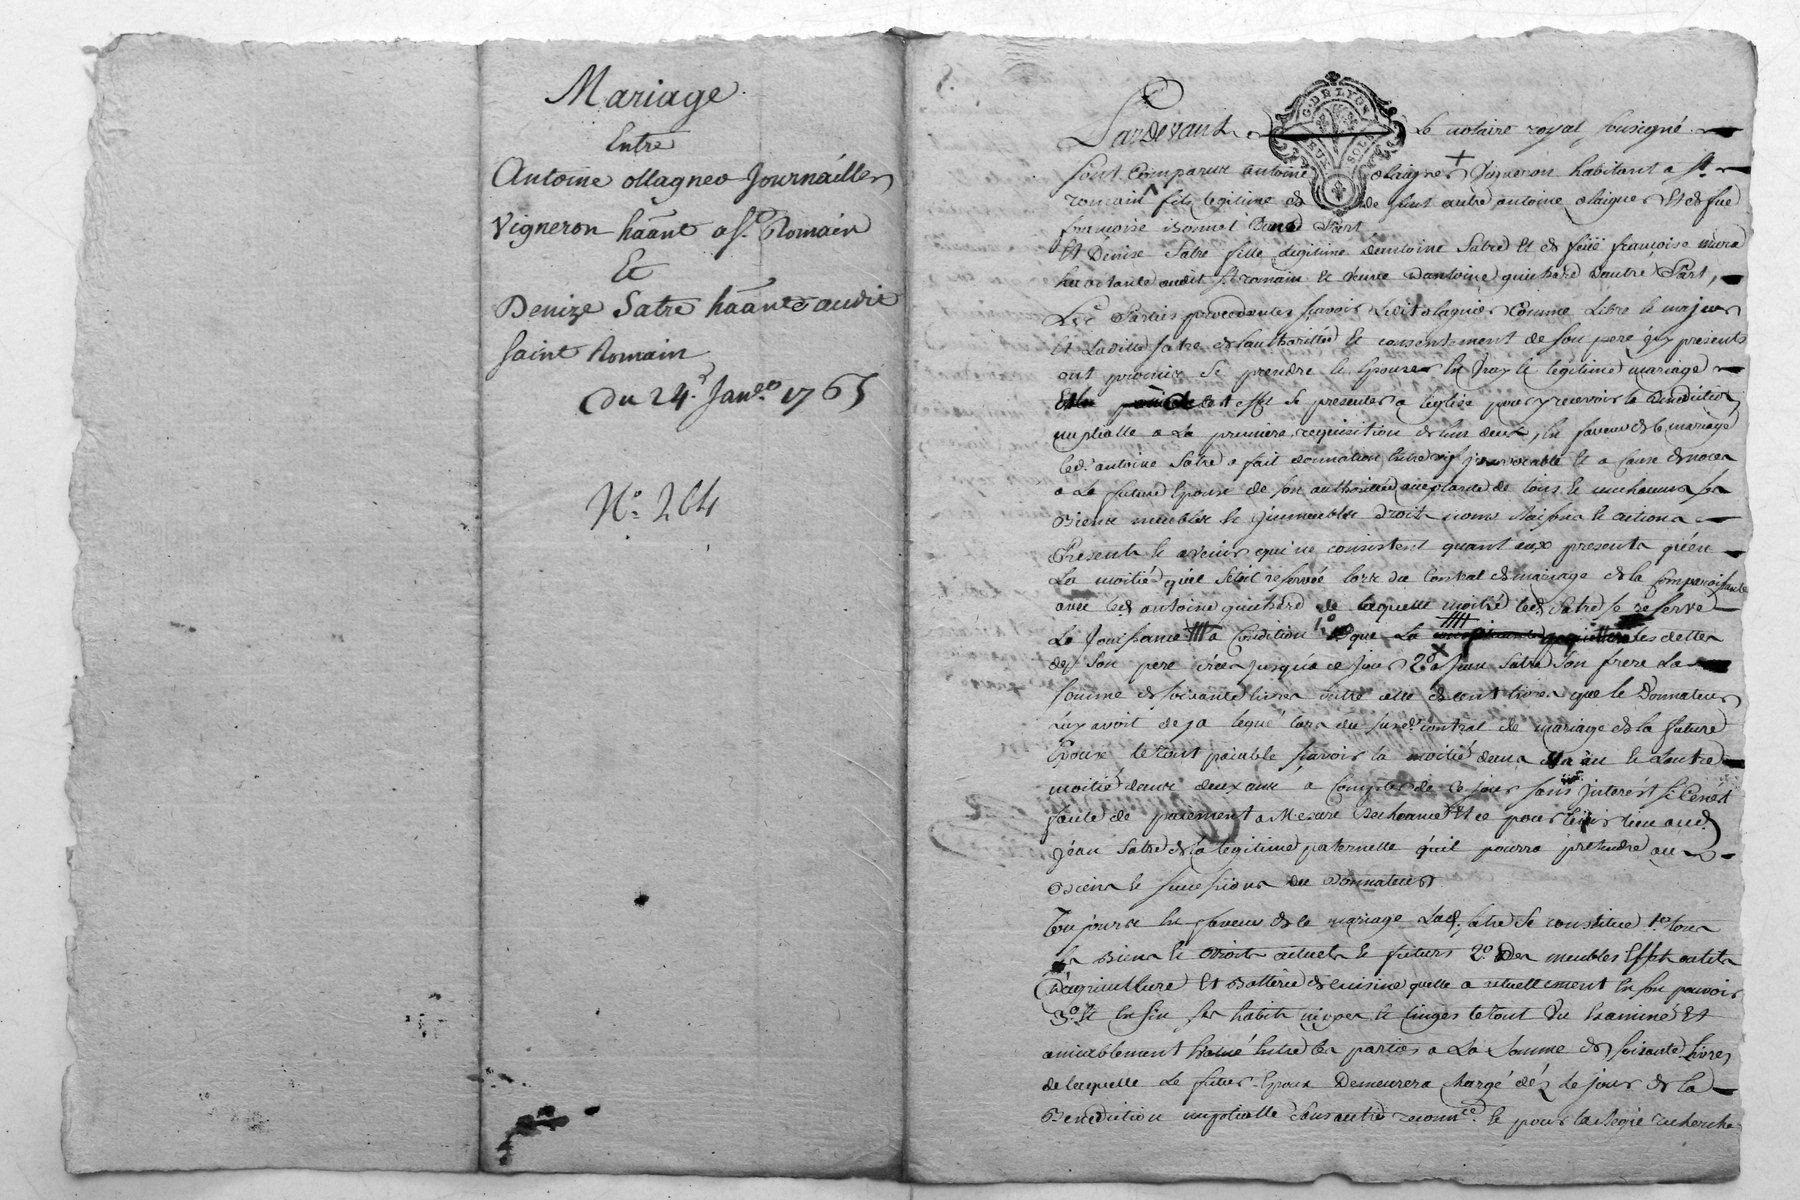 Mariage
Entre
Antoine ollagner Journaillier
Vigneron häänt a St. Romain
Et
Denize Satre häänte audit
saint Romain
Du 24e. Janer. 1765
No. 264
G. DE LYON
SOLS
Pardevant Le notaire royal soussigné
sont Comparus antoine olaignier Vigneron habitant a St.
romain fils legitime de feut autre antoine olaignier Et de fue
francoise Bonnet Dune Part
Et Denise Satre fille legitime d'antoine Satre Et de feüe francoise
habitante audit St. romain Et Veuve d'antoine d'autre Part,
Les Parties procedantes scavoir Ledit olagnier Comme Libre Et majeur
Et Laditte satre de l'authoritté Et consentement de son pere icy presents
ont promis se prendre Et Epouser En vray Et legitime mariage
cet effet se presenter a leglise pour y recevoir la Benediction
nuptialle a La premiere requisition de lun deux, En faveur de ce mariage
led. antoine Satre a fait donnation Entre vifs irrevocable Et a Cause de noces
a La future Epouse de son authoritté acceptante de tous Et uns chacuns ses
Biens meubles Et Immeubles Droits noms Raisons Et actions
Presents Et avenir qui ne consistent quant aux presents qu'en
La moitié qu'il s'etoit reservée lors du Contrat de mariage de la Comparoissante
avec led. antoine de laquelle moitié led. Satre se reserve
La Jouissance a Condition 1o que La les dettes
de son pere crées jusqu'a ce jour 2o a Jean Satre son frere La
somme de soixante livres outre celle de cent livres que le Donnateur
Luy avoit deja legué lors du susd. contrat de mariage de la future
Epouse le tout paiable scavoir la moitié dans un an Et Lautre
moitié dans deux ans a Compter de ce jour sans Interest si Cen'est
faute de paiement a Mesure d'echeance Et ce pour tenir lieu aud.
Jean Satre de la legitime paternelle qu'il pourra pretendre au
Biens Et successions du Donnateur
Toujours En faveur de ce mariage Lad. satre se constitue 1o tous
ses Biens Et Droits actuels Et futurs 2o Des meubles Effets outils
D'agriculture Et Batterie de cuisine quelle a actuellement En son pouvoir
3o Et Enfin ses habits nippes Et linges le tout Vu Examiné Et
amiablement Evalué Entre les parties a La Somme de soixante livres
de laquelle Le futur Epoux Demeurera chargé dés Le jour de la
Benediction nuptialle sans autre reconnce. Et pour la recherche